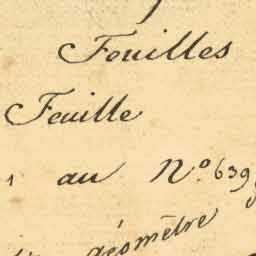 Feuilles
Feuille
au N.º 639
géomètre